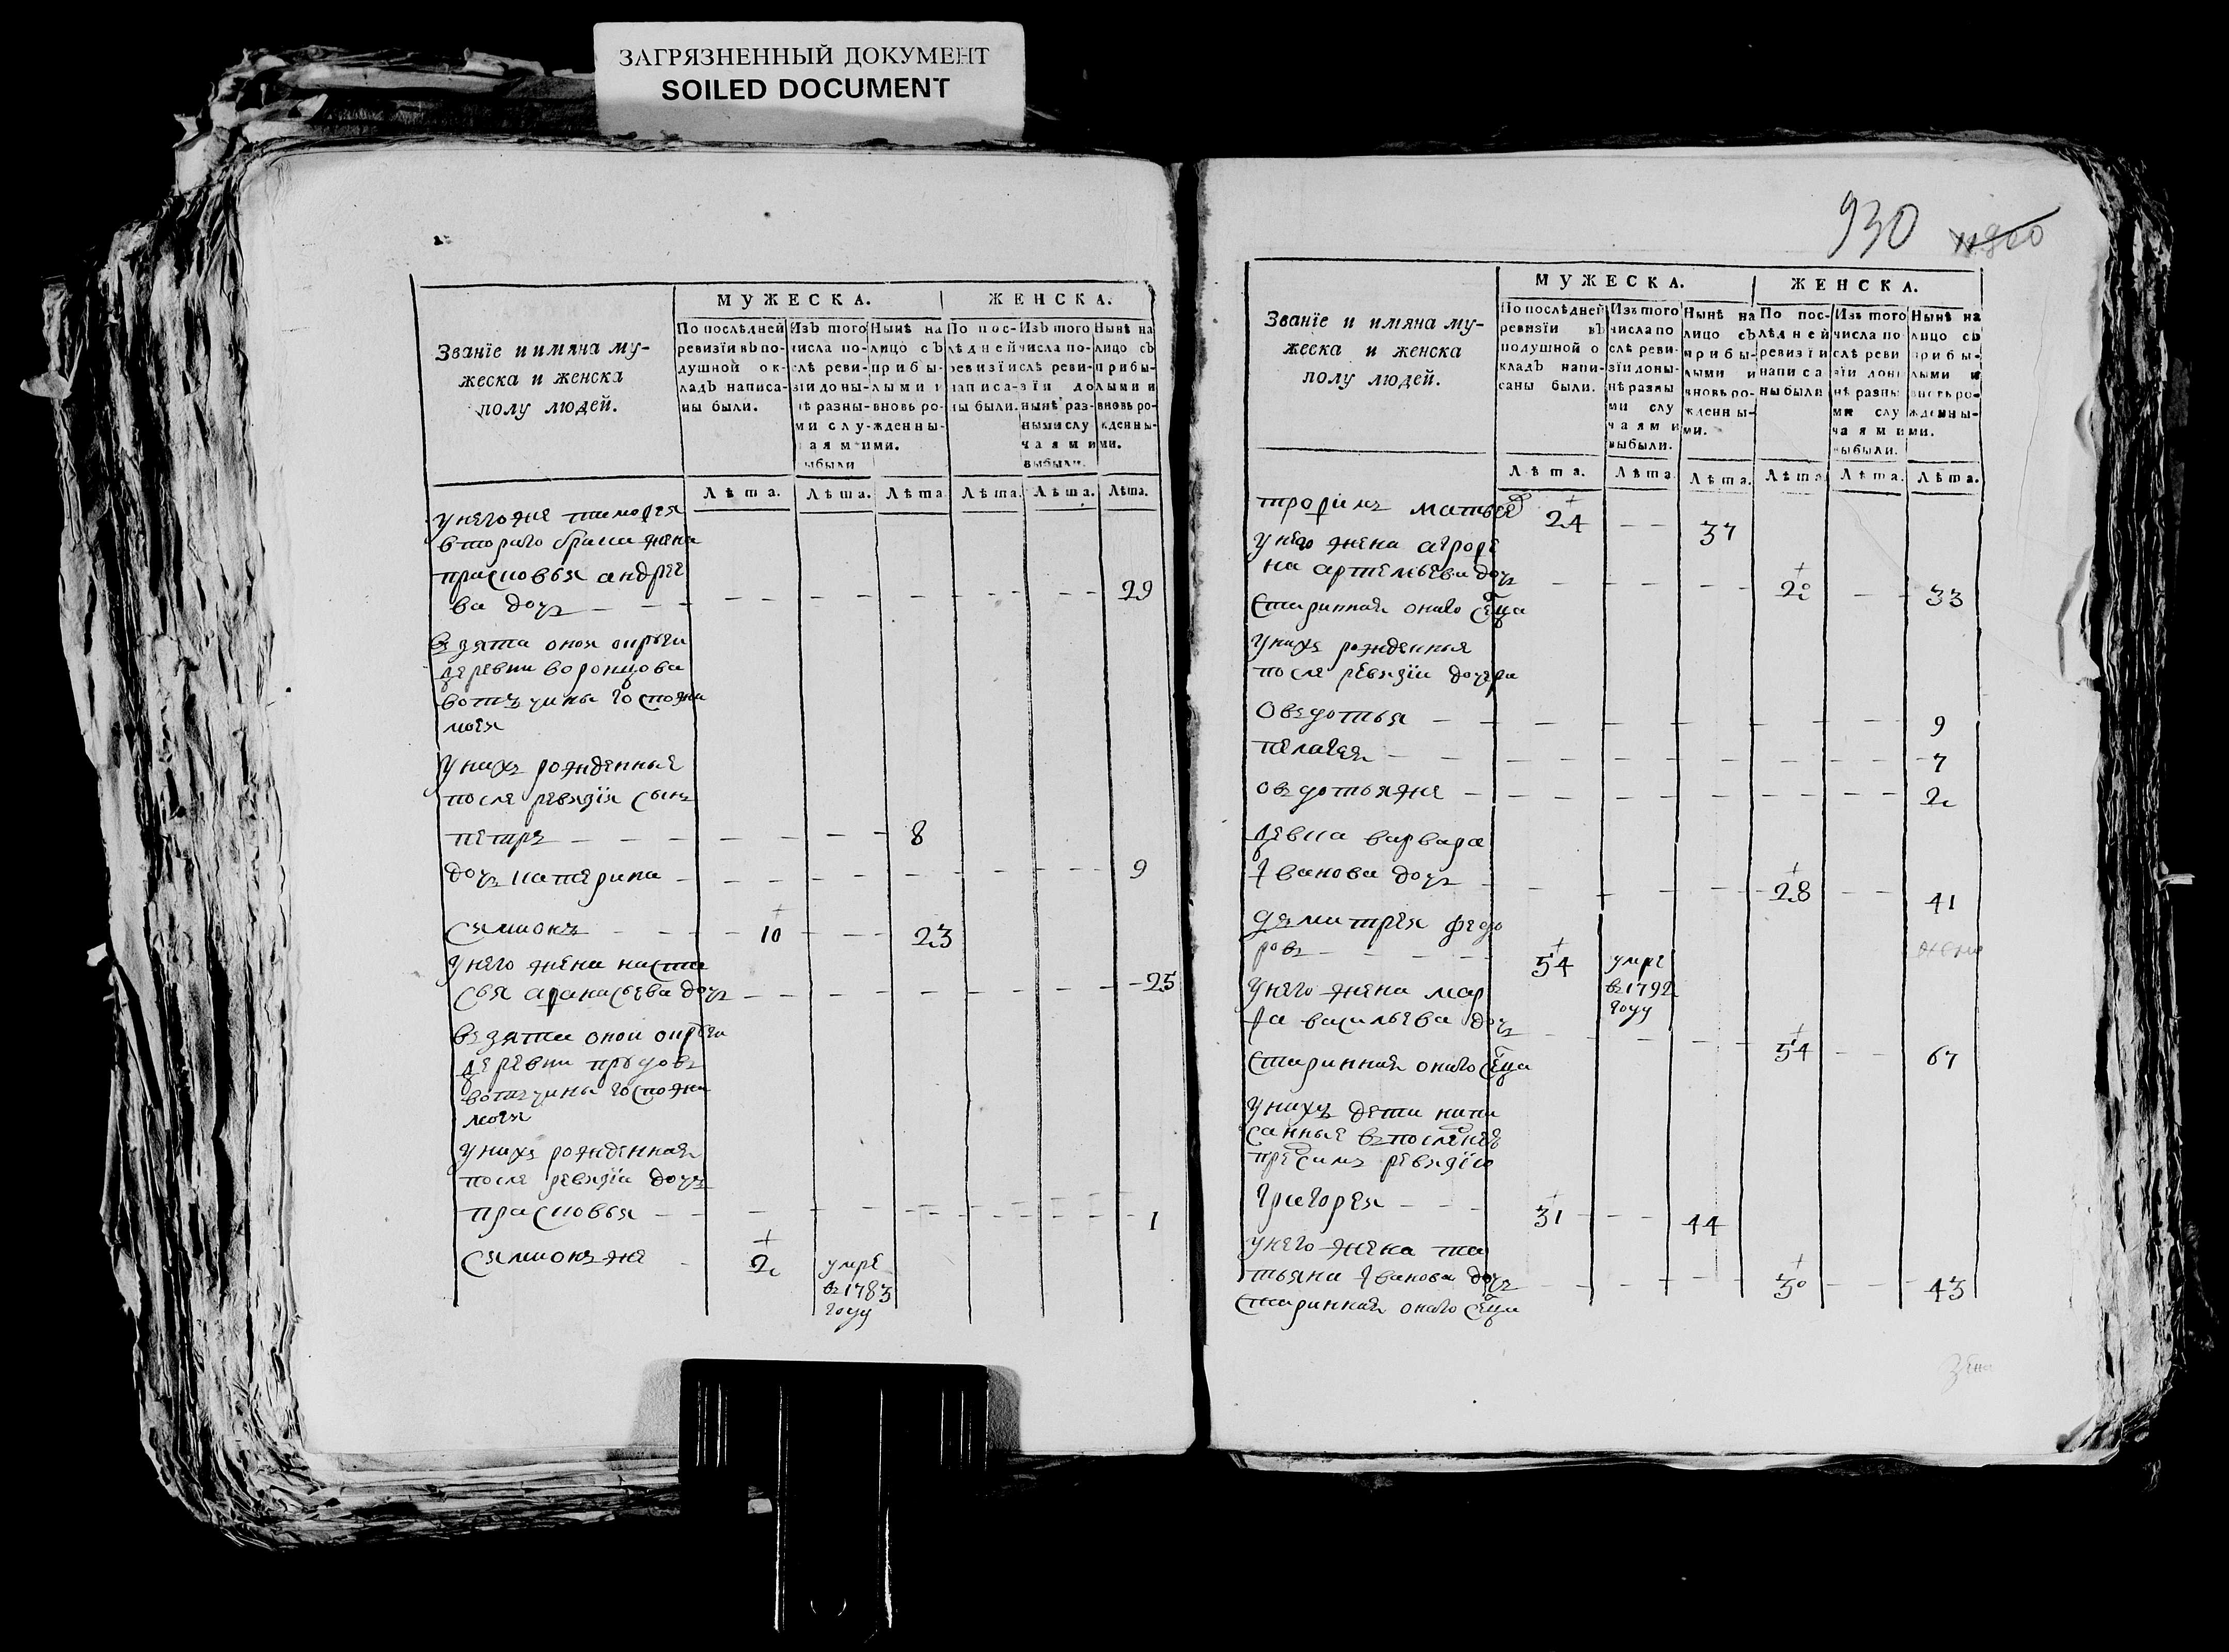 ЗАГРЯЗНЕННЫЙ ДОКУМЕНТ
SOILED DOCUMENT
МУЖЕСКА. ЖЕНСКА.
Званїе и имяна му-
жеска и женска
полу людей.
По послѣдней
ревизїи въ по-
душной ок-
ладъ написа-
ны были.
Изъ того
числа по-
слѣ реви-
зїи доны-
нѣ разны-
ми слу-
чаями
выбыли
Нынѣ на
лицо съ
прибы-
лыми и
вновь ро-
жденны-
ми.
По пос-
лѣдней
ревизїи
написа-
ны были.
Изъ того
числа по-
слѣ реви-
зїи до
нынѣ раз-
ными слу
чаями
выбыли.
Нынѣ на
лицо съ
прибы-
лыми и
вновь ро-
жденны-
ми.
Лѣта. Лѣта. Лѣта Лѣта. Лѣта. Лѣта.
у него же тимофея
втораго брата жена
прасковья андрее
ва дочь 29
взята оная
деревни воронцова
вотчины госпожи
моея
у нихъ рожденные
после ревизїи сынъ
петръ 8
дочь катерина 9
семионъ 10 23
у него жена наста
сья афанасьева дочь 25
взята оная
деревни прудовъ
вотчины госпожи
моея
у нихъ рожденная
после ревизїи дочь
прасковья 1
семионъ же 2 умре
въ 1783
году
930
МУЖЕСКА. ЖЕНСКА.
Званїе и имяна му-
жеска и женска
полу людей.
По послѣдней
ревизїи въ
подушной о
кладъ напи-
саны были.
Изъ того
числа по
слѣ реви-
зїи доны-
нѣ разны
ми слу
чаями
выбыли.
Нынѣ на
лицо съ
прибы-
лыми и
вновь ро-
жденны-
ми.
По пос-
лѣдней
ревизїи
написа
ны были
Изъ того
числа по
слѣ реви
зїи доны
нѣ разны
ми слу
чаями
выбыли.
Нынѣ на
лицо съ
прибы-
лыми и
вновь ро-
жденны-
ми.
Лѣта. Лѣта Лѣта. Лѣта Лѣта. Лѣта.
трофимъ матвеев 24 37
у него жена афросе
на артемьева дочь 20 33
старинная онаго селца
у нихъ рожденныя
после ревизїи дочери
овдотья 9
пелагея 7
овдотья же 2
девка варвара
иванова дочь 28 41
дмитрей федо
ровъ 54 умре
въ 1792
году
у него жена мар
фа васильева дочь 54 67
старинная онаго селца
у нихъ дети напи
санные въ последней
пред симъ ревизїю
григорей 31 44
у него жена та
тьяна иванова дочь 30 43
старинная онаго селца